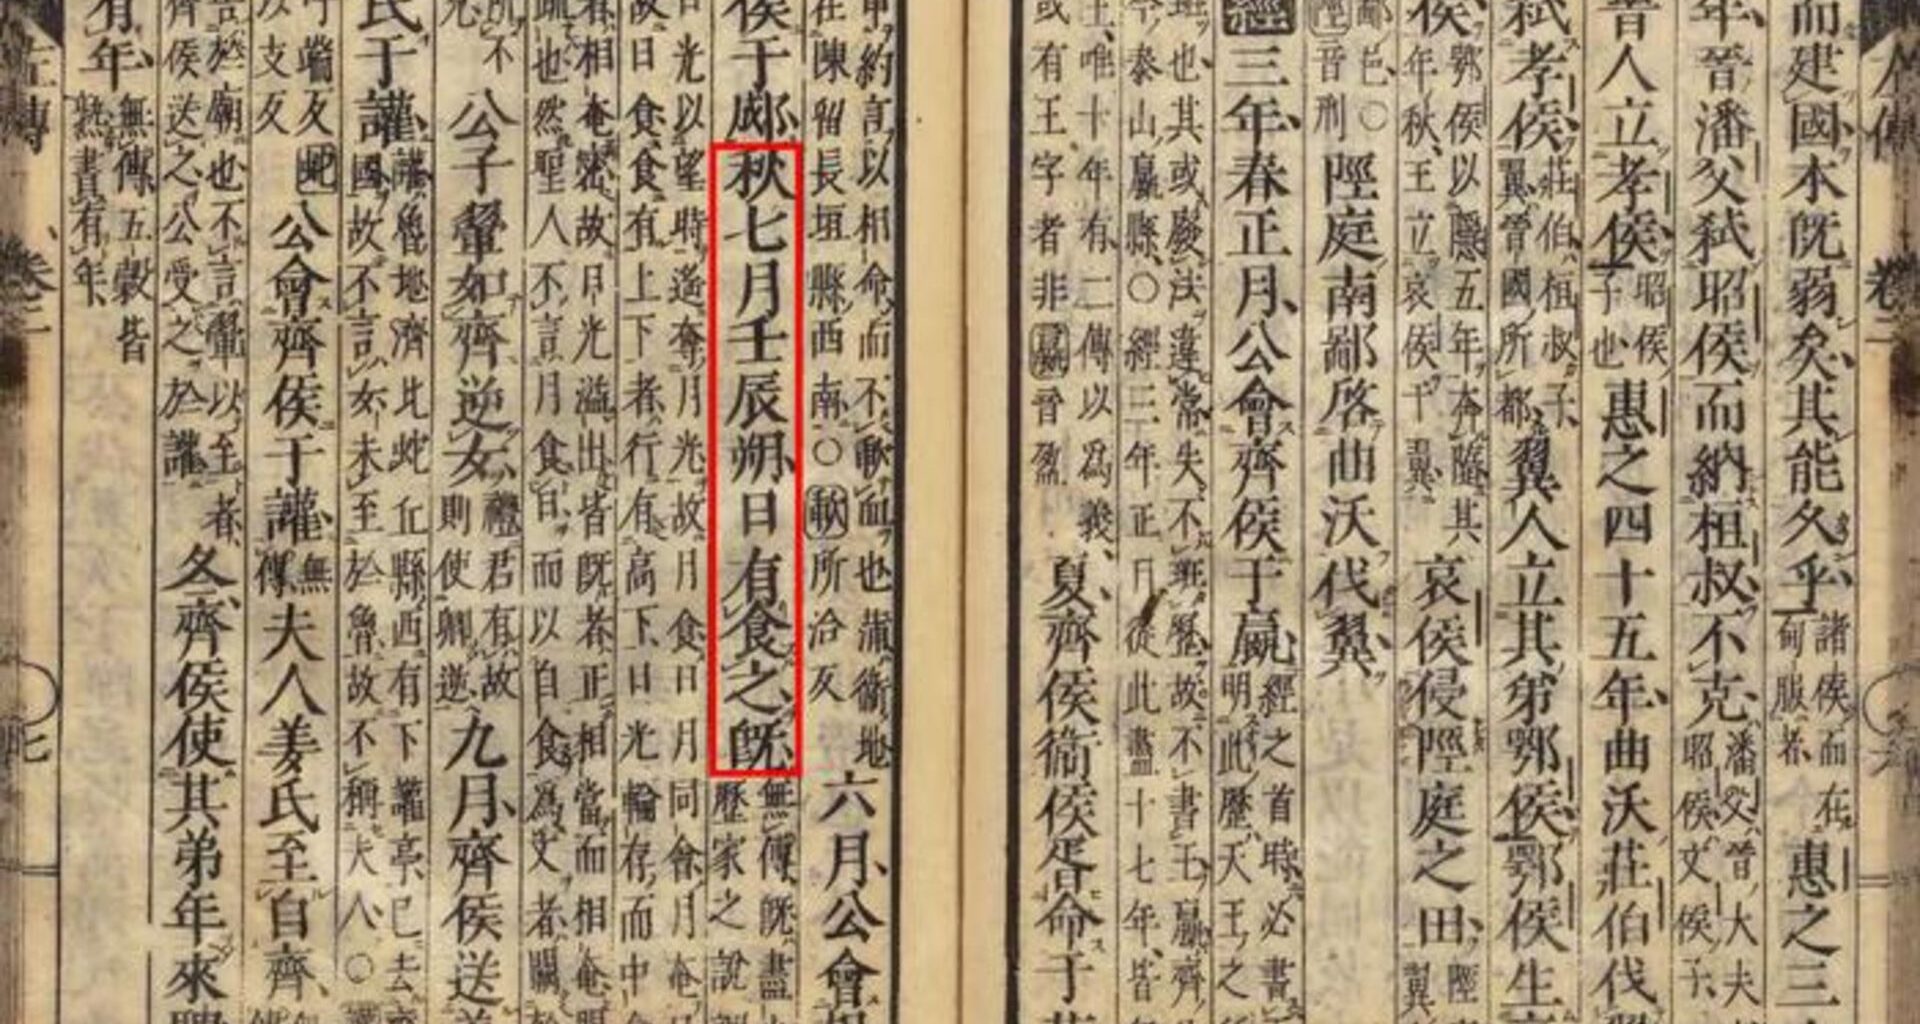 而建國本既弱矣其能久乎
諸侯而在
甸服者
惠之三
年晉潘父弒昭侯而納桓叔不克
潘父晉大夫
昭侯文侯子
晉人立孝侯
昭侯
子也
惠之四十五年曲沃莊伯伐
弒孝侯
莊伯桓叔子
翼晉國所都
翼人立其弟鄂侯鄂侯生
侯
鄂侯以隱五年奔隨其
年秋王立哀侯于翼
哀侯侵陘庭之田
陘
翼
鄙邑○
陘音刑
陘庭南鄙啓曲沃伐翼
經三年春正月公會齊侯于嬴
經之首時必書
明此歷天王之
班也其或廢法違常失不班歷故不書王嬴齊
今泰山嬴縣○經三年正月從此盡十七年皆
王唯十年有二傳以爲義
或有王字者非嬴音盈
夏齊侯衞侯胥命于
申約言以相命而不歃血也蒲衞地
在陳留長垣縣西南○歃所洽反
六月公會
侯于郕秋七月壬辰朔日有食之既
無傳既盡
歷家之說
日光以望時遙奪月光故月食日月同會月奄
故日食食有上下者行有高下日光輪存而中
者相奄密故日光溢出皆既者正相當而相奄
疏也然聖人不言月食日而以自食爲文者闕
所不
公子翬如齊逆女
禮君有故
則使卿逆
九月齊侯送
氏于讙
讙魯地濟北蛇丘縣西有下讙亭已去
國故不言女未至於魯故不稱夫人○
呼端反
又支反
公會齊侯于讙
無
傳
夫人姜氏至自齊
告於廟也不言翬以至者
齊侯送之公受之於讙
冬齊侯使其弟年來
有年
無傳五穀皆
熟書有年
左傳
卷二